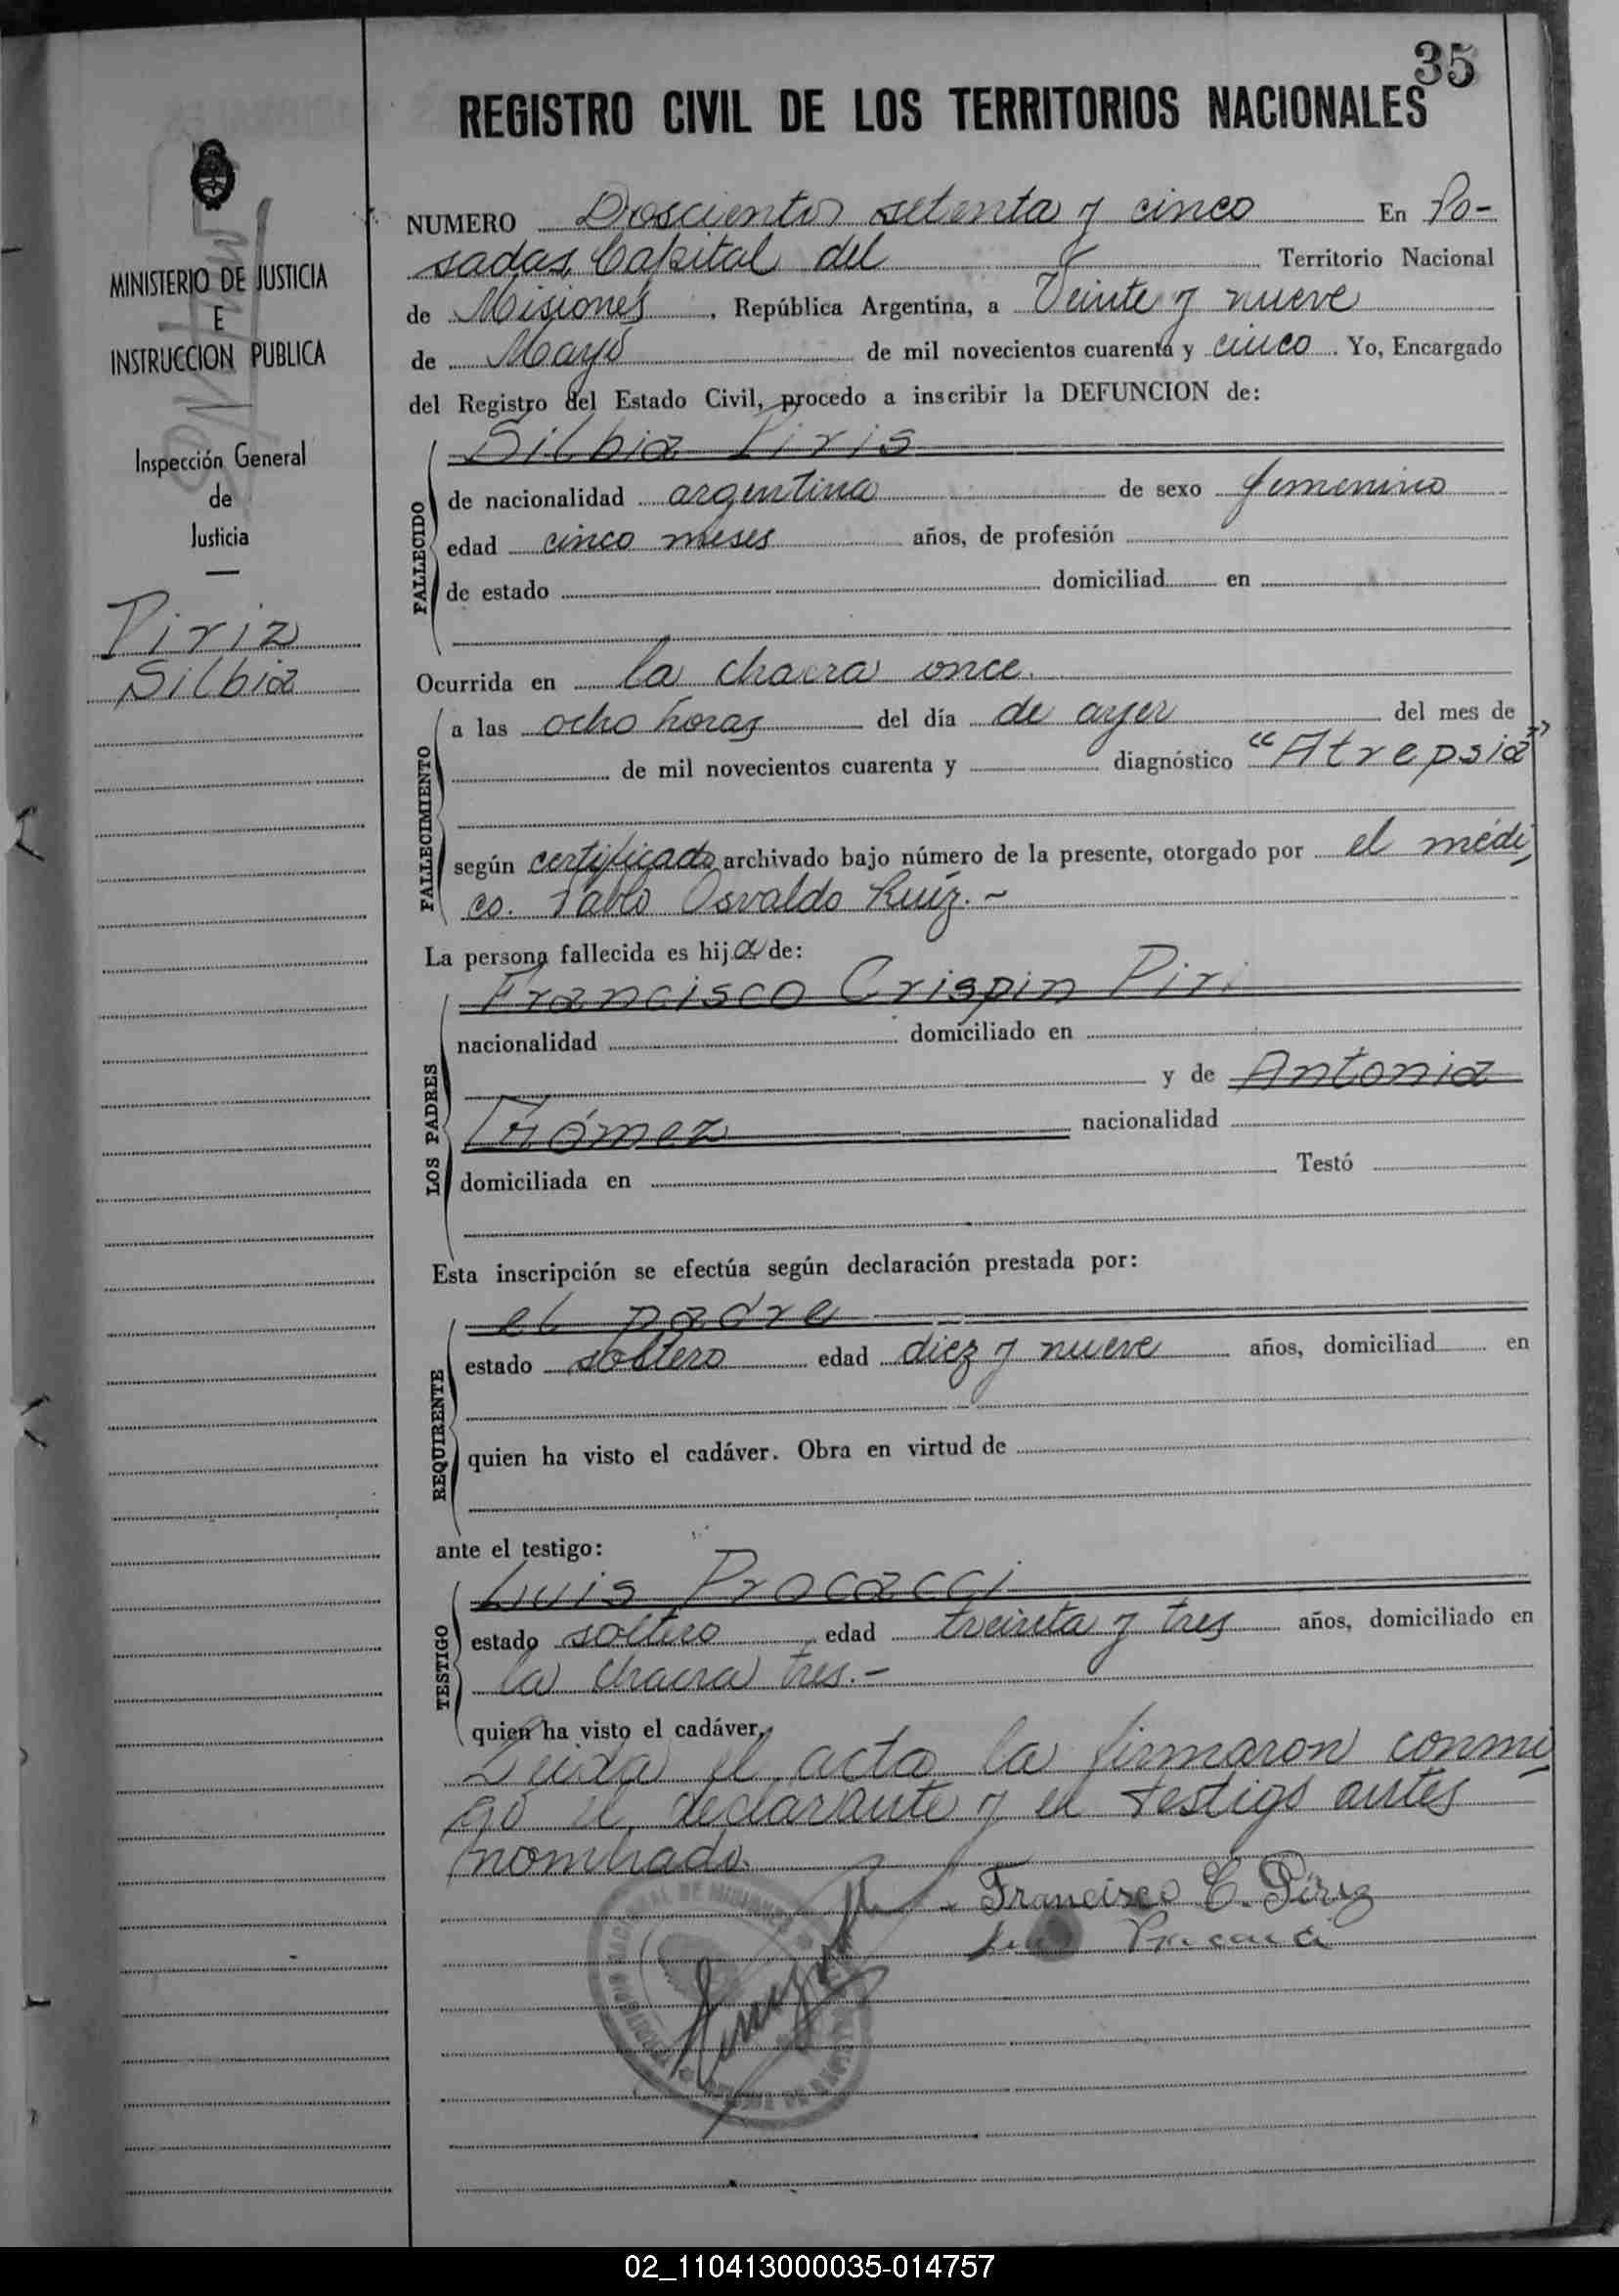 35
REGISTRO CIVIL DE LOS TERRITORIOS NACIONALES
MINISTERIO DE JUSTICIA
E
INSTRUCCION PUBLICA
Inspección General
de
Justicia
Piriz
Silbia
NUMERO Doscientos setenta y cinco En Po-
sadas, Capital del Territorio Nacional
de Misiones, República Argentina, a Veinte y nueve
de Mayo de mil novecientos cuarenta y cinco. Yo, Encargado
del Registro del Estado Civil, procedo a inscribir la DEFUNCION de:
Silbia Piris
FALLECIDO
de nacionalidad argentina de sexo femenino
edad cinco meses años, de profesión
de estado domiciliad en
Ocurrida en la chacra once.
FALLECIMIENTO
a las ocho horas del día de ayer del mes de
de mil novecientos cuarenta y diagnóstico "Atrepsia"
según certificado archivado bajo número de la presente, otorgado por el médi-
co. Pablo Osvaldo Ruíz.-
La persona fallecida es hija de:
LOS PADRES
Francisco Crispin Piri
nacionalidad domiciliado en
y de Antonia
Gómez nacionalidad
domiciliada en Testó
Esta inscripción se efectúa según declaración prestada por:
REQUIRENTE
el padre
estado soltero edad diez y nueve años, domiciliad en
quien ha visto el cadáver. Obra en virtud de
ante el testigo:
TESTIGO
Luis Procacci
estado soltero edad treinta y tres años, domiciliado en
la chacra tres.-
quien ha visto el cadáver,
Leida el acta la firmaron conmi-
go el declarante y el testigo antes
nombrado.
Francisco C. Píriz
02_110413000035-014757